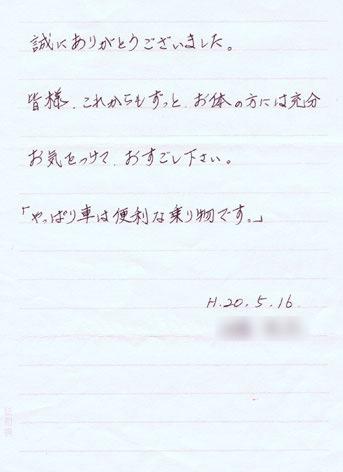 誠にありがとうございました。
皆様、これからもずっと、お体の方には充分
お気をつけて、おすごし下さい。
「やっぱり車は便利な乗り物です。」
H.20.5.16